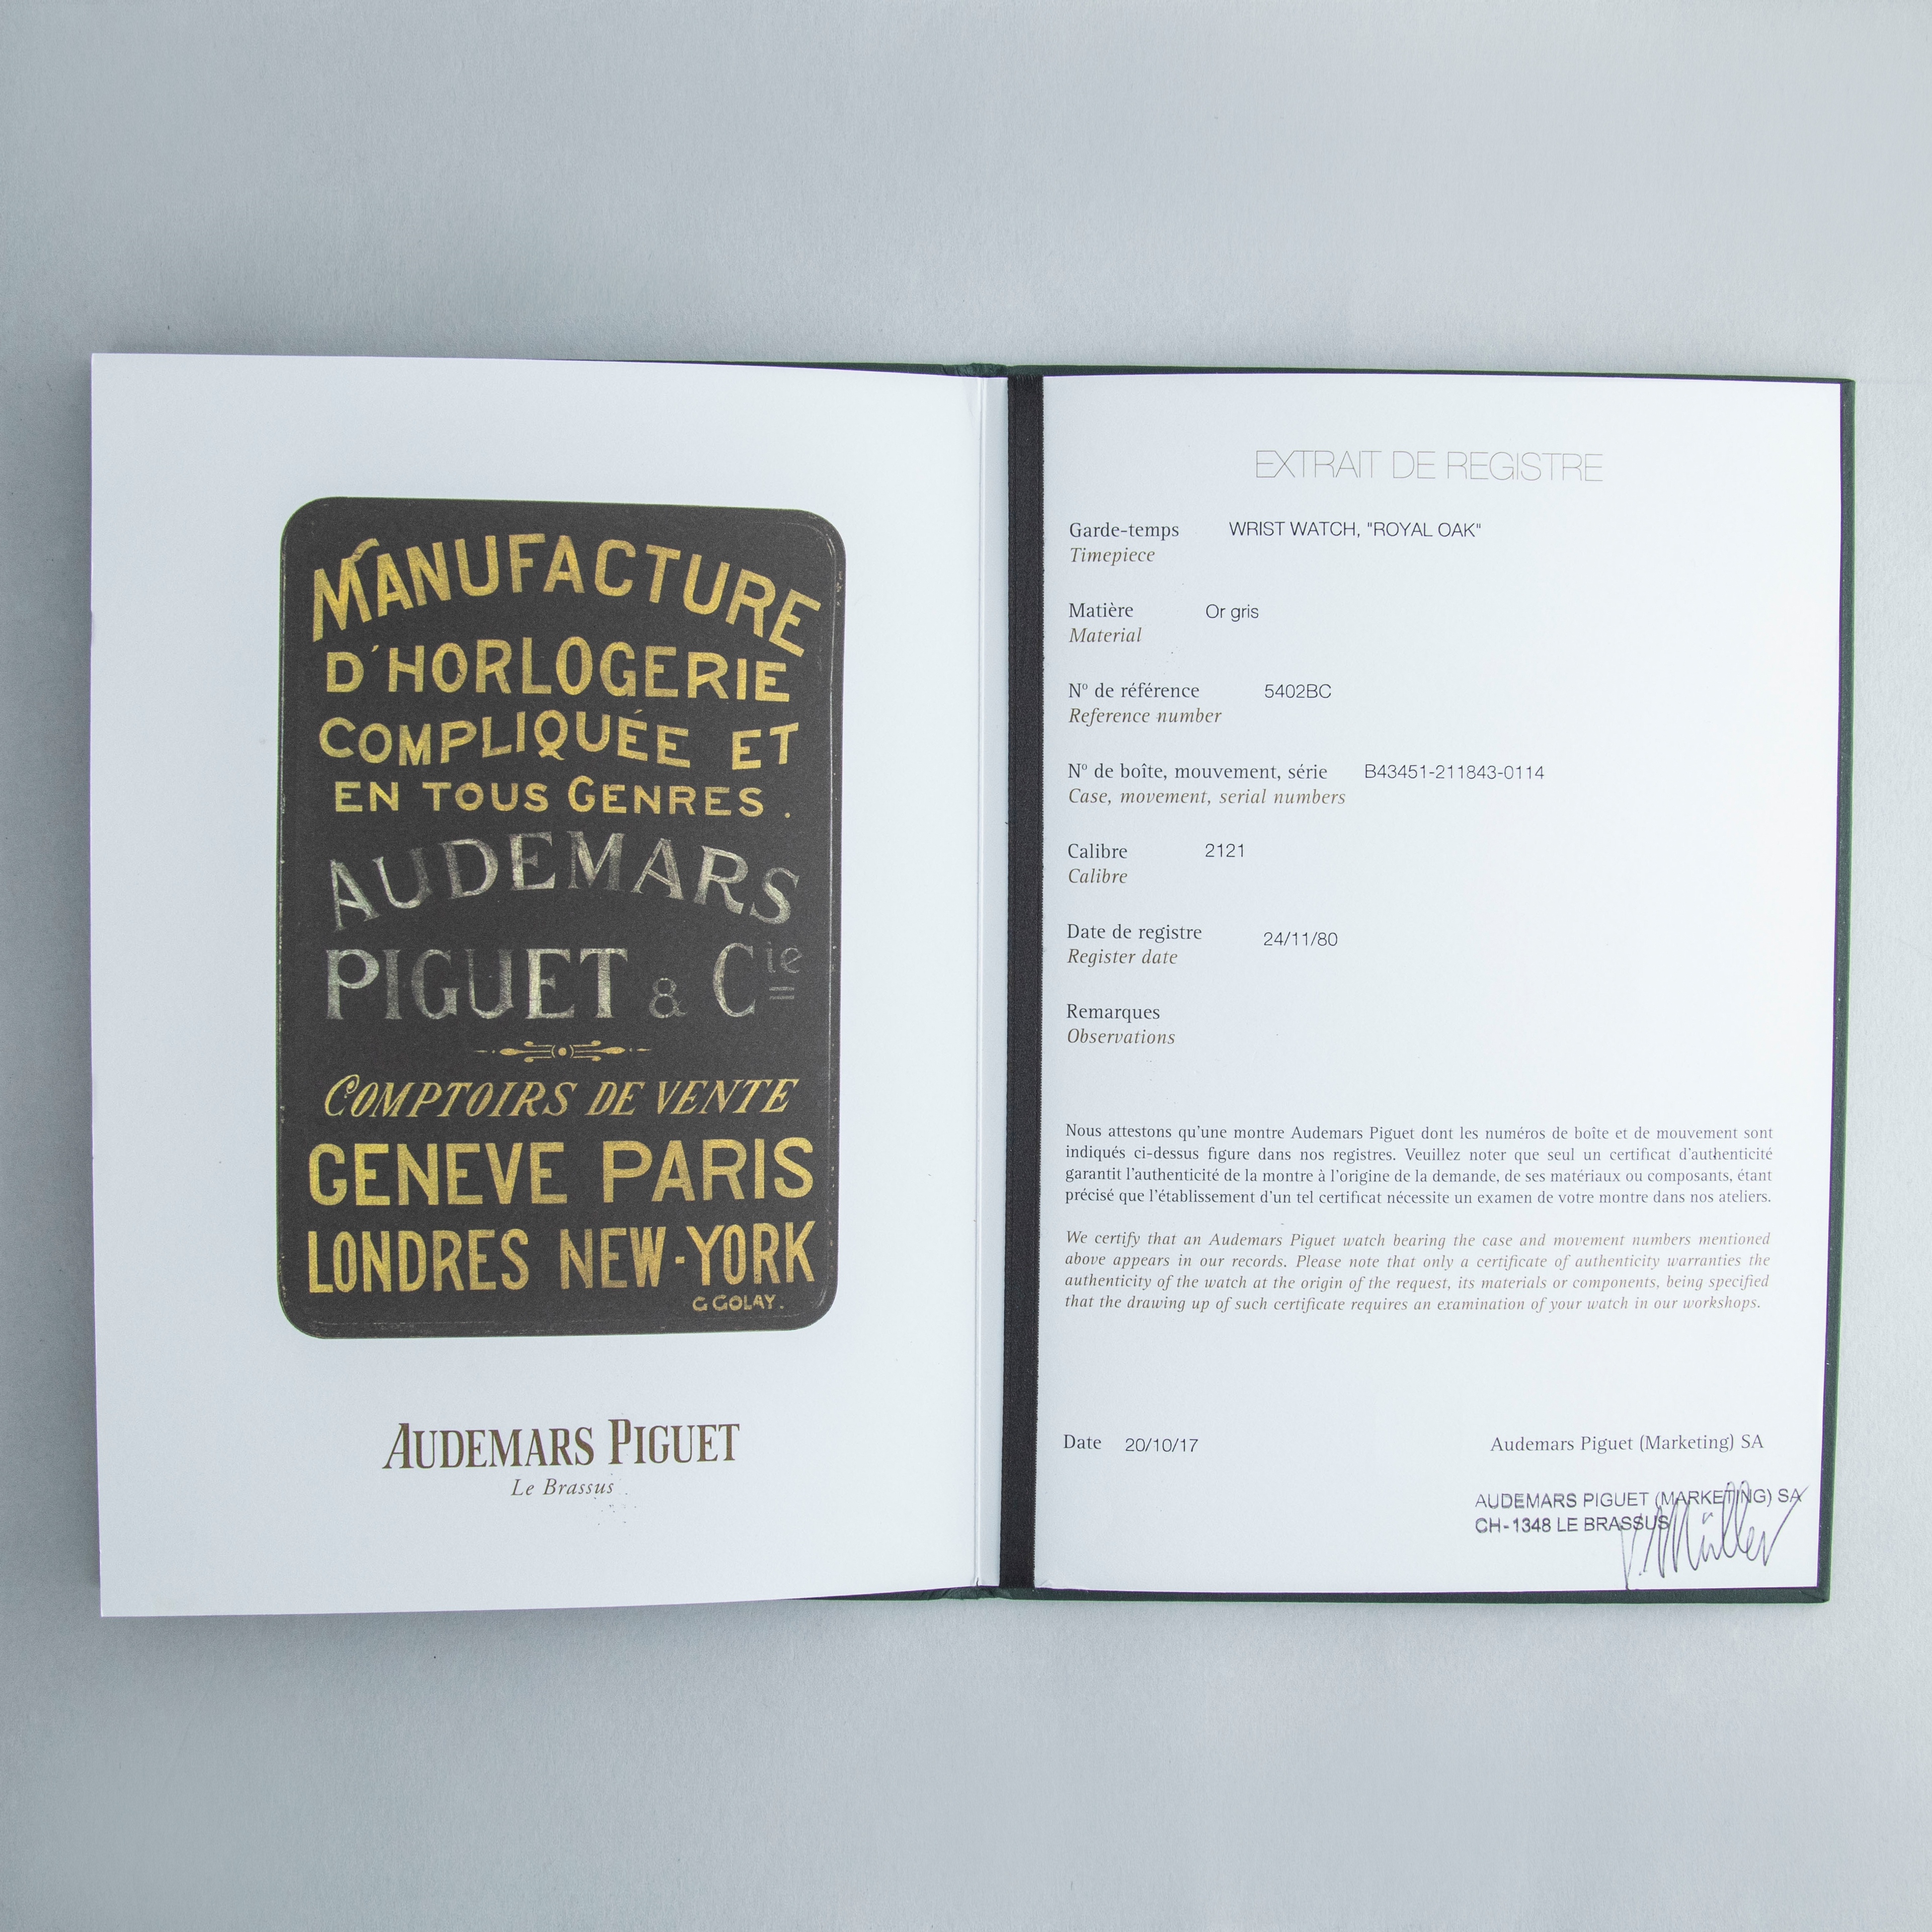 MANUFACTURE
D'HORLOGERIE
COMPLIQUÉE ET
EN TOUS GENRES.
AUDEMARS
PIGUET & Cie
COMPTOIRS DE VENTE
GENEVE PARIS
LONDRES NEW-YORK
G GOLAY.
AUDEMARS PIGUET
Le Brassus
EXTRAIT DE REGISTRE
Garde-temps WRIST WATCH, "ROYAL OAK"
Timepiece
Matière Or gris
Material
Nº de référence 5402BC
Reference number
Nº de boîte, mouvement, série B43451-211843-0114
Case, movement, serial numbers
Calibre 2121
Calibre
Date de registre 24/11/80
Register date
Remarques
Observations
Nous attestons qu'une montre Audemars Piguet dont les numéros de boîte et de mouvement sont
indiqués ci-dessus figure dans nos registres. Veuillez noter que seul un certificat d'authenticité
garantit l'authenticité de la montre à l'origine de la demande, de ses matériaux ou composants, étant
précisé que l'établissement d'un tel certificat nécessite un examen de votre montre dans nos ateliers.
We certify that an Audemars Piguet watch bearing the case and movement numbers mentioned
above appears in our records. Please note that only a certificate of authenticity warranties the
authenticity of the watch at the origin of the request, its materials or components, being specified
that the drawing up of such certificate requires an examination of your watch in our workshops.
Date 20/10/17
Audemars Piguet (Marketing) SA
AUDEMARS PIGUET (MARKETING) SA
CH-1348 LE BRASSUS
Müller